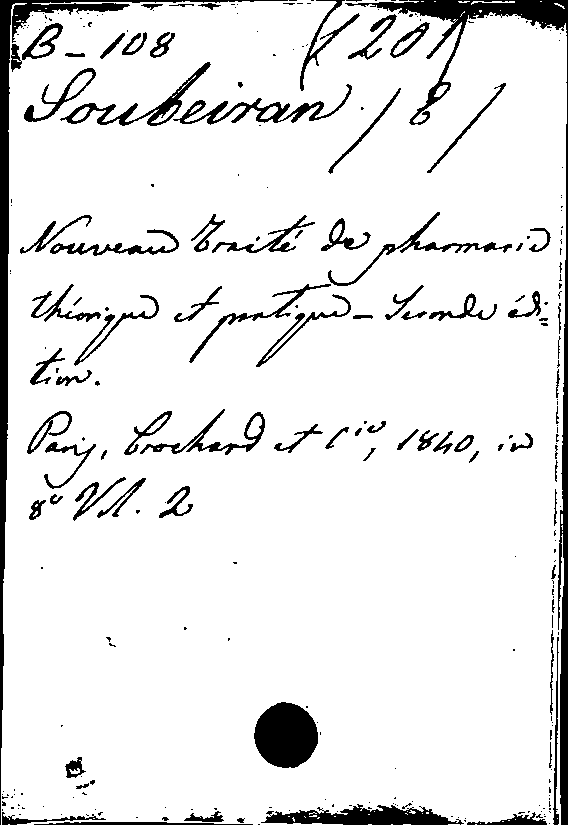 B-108 (1201)
Soubeiran /E/
Nouveau Traité de pharmacie
théorique et pratique - Seconde édi=
tion.
Paris, Crochard et Cie, 1840, in
8° Vol. 2